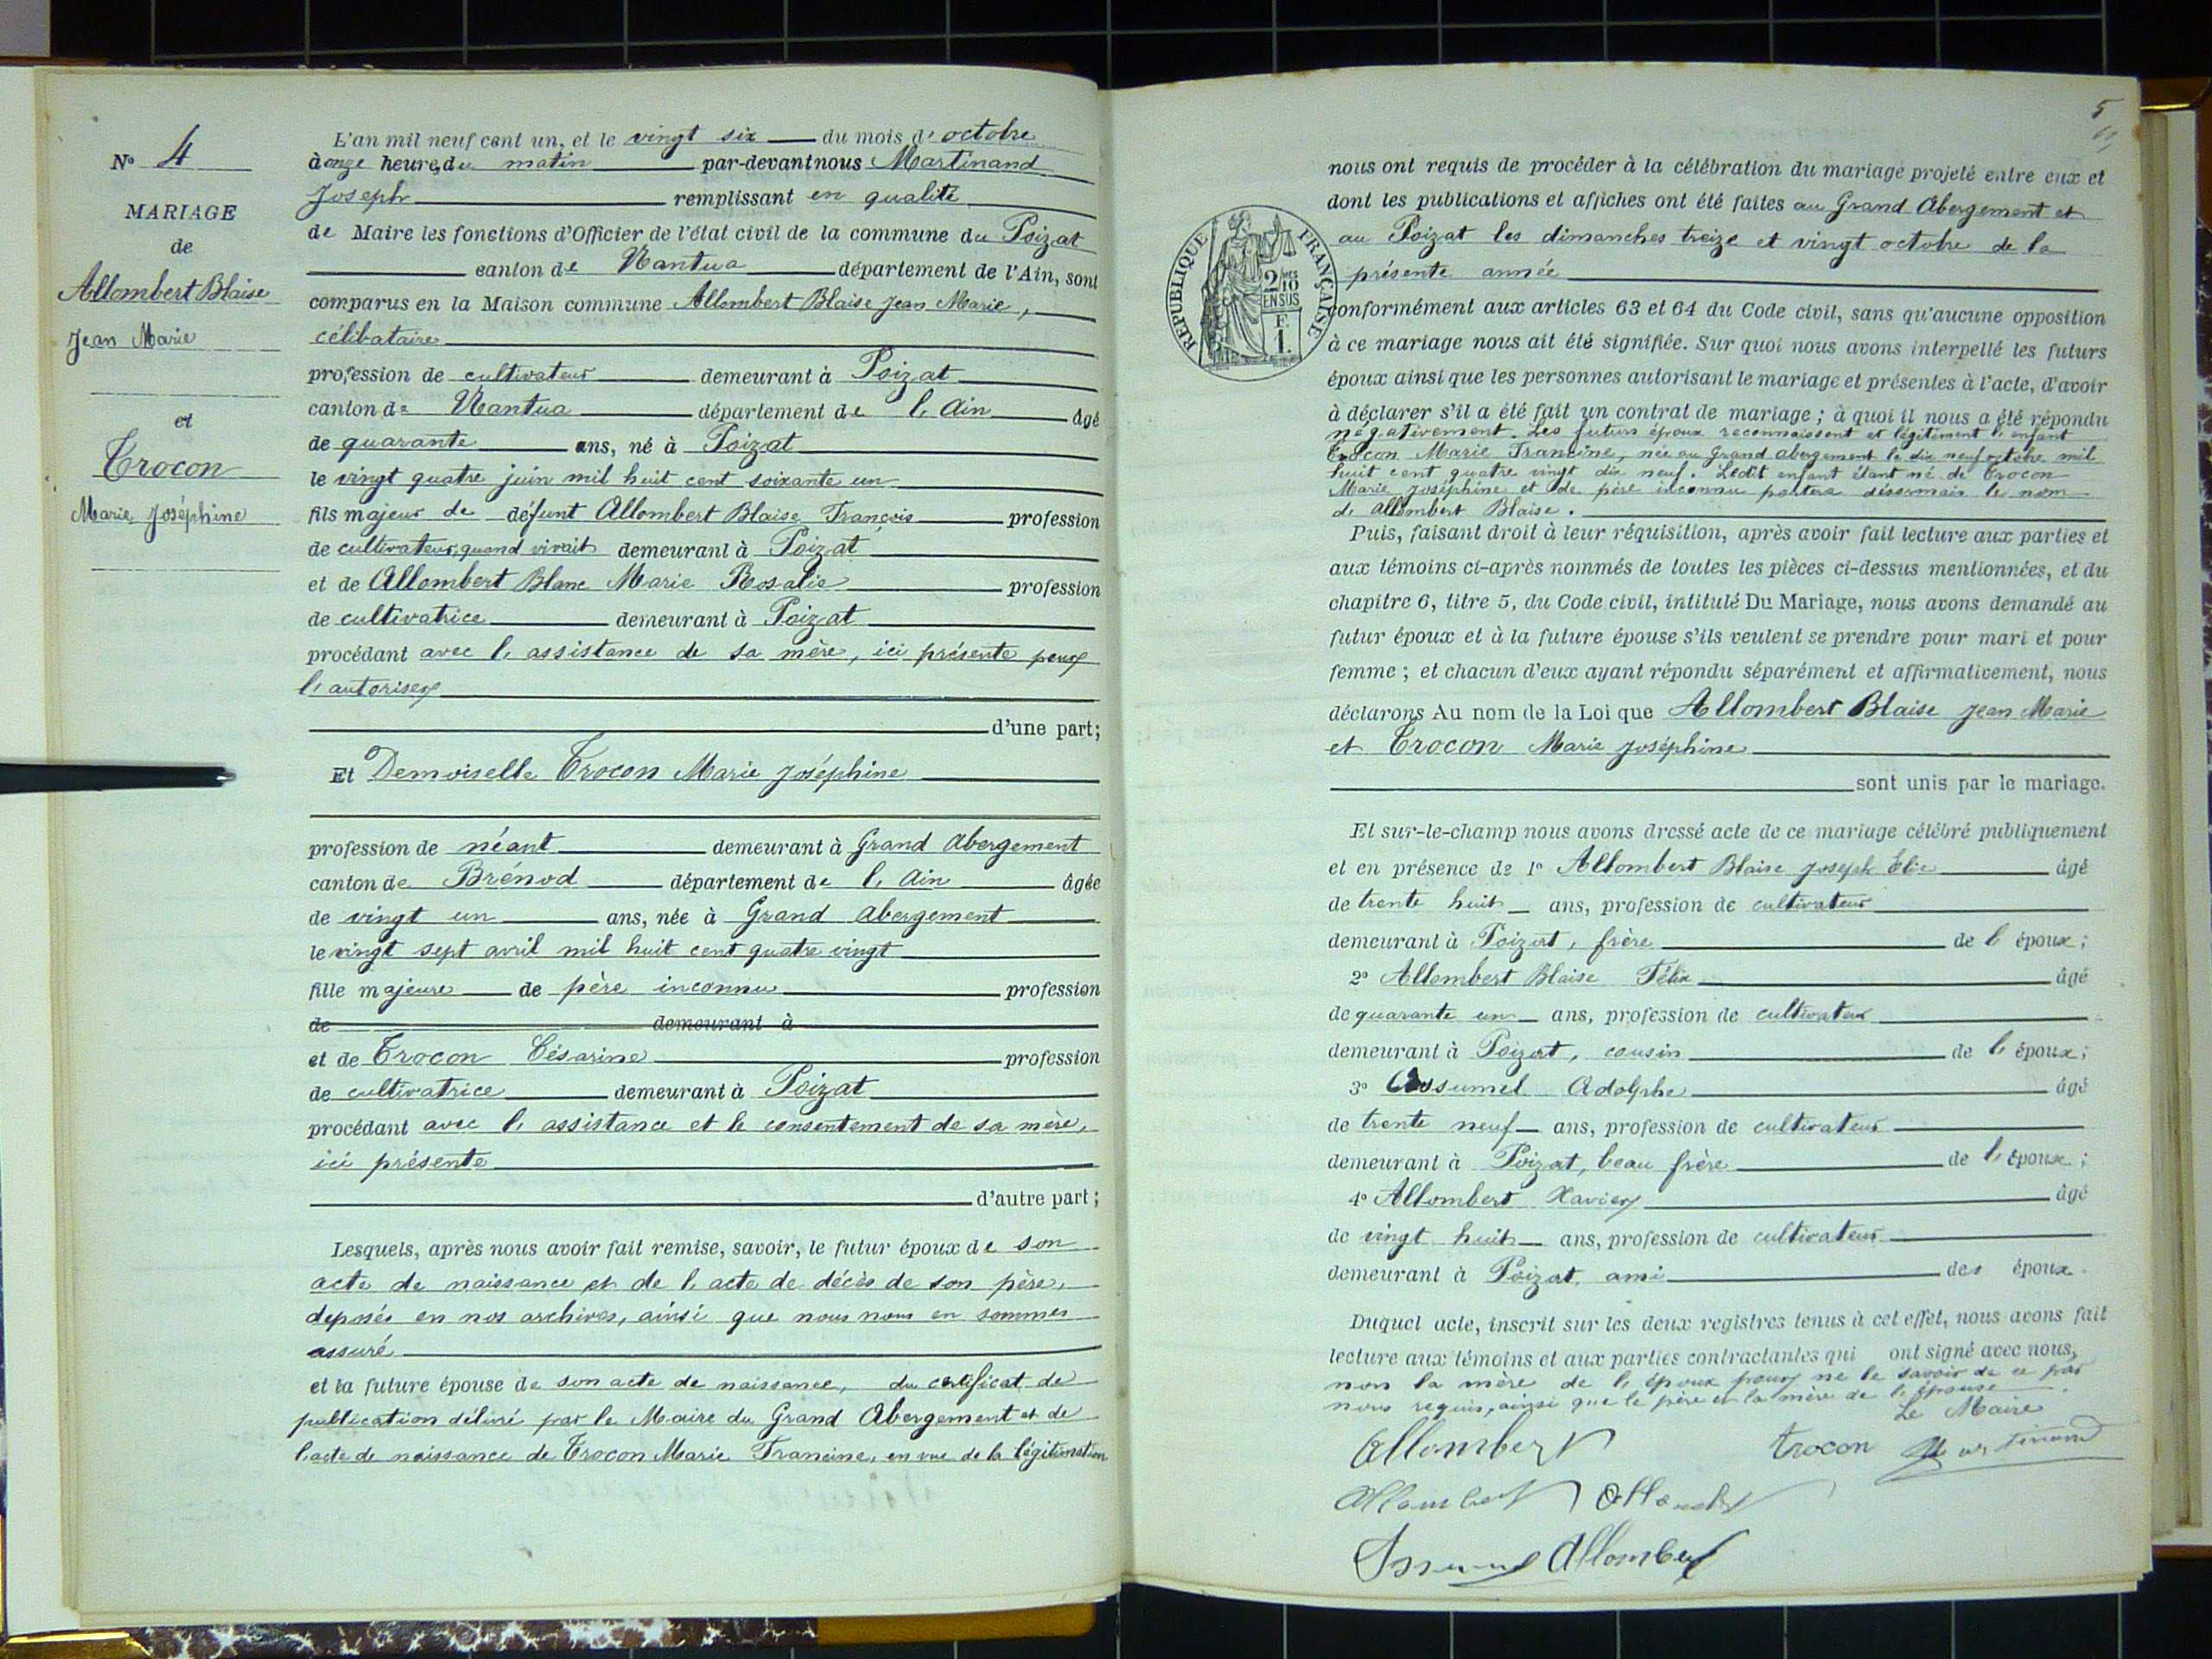 N° 4
MARIAGE
de
Allombert Blaise
Jean Marie
et
Trocon
Marie Joséphine
L'an mil neuf cent un, et le vingt six du mois d'octobre
à onze heures du matin par-devant nous Martinand
Joseph remplissant en qualité
de Maire les fonctions d'Officier de l'état civil de la commune du Poizat
canton de Nantua département de l'Ain, sont
comparus en la Maison commune Allombert Blaise Jean Marie,
célibataire
profession de cultivateur demeurant à Poizat
canton de Nantua département de l'Ain âgé
de quarante ans, né à Poizat
le vingt quatre juin mil huit cent soixante un
fils majeur de défunt Allombert Blaise François profession
de cultivateur, quand vivait demeurant à Poizat
et de Allombert Blanc Marie Rosalie profession
de cultivatrice demeurant à Poizat
procédant avec l'assistance de sa mère, ici présente pour
l'autoriser
d'une part;
Et Demoiselle Trocon Marie Joséphine
profession de néant demeurant à Grand Abergement
canton de Brénod département de l'Ain âgée
de vingt un ans, née à Grand Abergement
le vingt sept avril mil huit cent quatre vingt
fille majeure de père inconnu profession
de demeurant à
et de Trocon Césarine profession
de cultivatrice demeurant à Poizat
procédant avec l'assistance et le consentement de sa mère,
ici présente
d'autre part;
Lesquels, après nous avoir fait remise, savoir, le futur époux de son
acte de naissance et de l'acte de décès de son père,
déposés en nos archives, ainsi que nous nous en sommes
assuré
et la future épouse de son acte de naissance, du certificat de
publication délivré par le Maire du Grand Abergement et de
l'acte de naissance de Trocon Marie Francine, en vue de la légitimation
5
REPUBLIQUE FRANÇAISE
2 MES
10
EN SUS
F.
1.
nous ont requis de procéder à la célébration du mariage projeté entre eux et
dont les publications et affiches ont été faites au Grand Abergement et
au Poizat les dimanches treize et vingt octobre de la
présente année
conformément aux articles 63 et 64 du Code civil, sans qu'aucune opposition
à ce mariage nous ait été signifiée. Sur quoi nous avons interpellé les futurs
époux ainsi que les personnes autorisant le mariage et présentes à l'acte, d'avoir
à déclarer s'il a été fait un contrat de mariage; à quoi il nous a été répondu
négativement. Les futurs époux reconnaissent et légitiment l'enfant
Trocon Marie Francine, née au Grand abergement le dix neuf octobre mil
huit cent quatre vingt dix neuf. Ledit enfant étant né de Trocon
Marie Joséphine et de père inconnu portera désormais le nom
de Allombert Blaise.
Puis, faisant droit à leur réquisition, après avoir fait lecture aux parties et
aux témoins ci-après nommés de toutes les pièces ci-dessus mentionnées, et du
chapitre 6, titre 5, du Code civil, intitulé Du Mariage, nous avons demandé au
futur époux et à la future épouse s'ils veulent se prendre pour mari et pour
femme; et chacun d'eux ayant répondu séparément et affirmativement, nous
déclarons Au nom de la Loi que Allombert Blaise Jean Marie
et Trocon Marie Joséphine
sont unis par le mariage.
Et sur-le-champ nous avons dressé acte de ce mariage célébré publiquement
et en présence de 1° Allombert Blaise Joseph Elie âgé
de trente huit ans, profession de cultivateur
demeurant à Poizat, frère de l'époux;
2° Allombert Blaise Félix âgé
de quarante un ans, profession de cultivateur
demeurant à Poizat, cousin de l'époux;
3° Assumel Adolphe âgé
de trente neuf ans, profession de cultivateur
demeurant à Poizat, beau frère de l'époux;
4° Allombert Xavier âgé
de vingt huit ans, profession de cultivateur
demeurant à Poizat, ami des époux.
Duquel acte, inscrit sur les deux registres tenus à cet effet, nous avons fait
lecture aux témoins et aux parties contractantes qui ont signé avec nous,
non la mère de l'époux pour ne le savoir de ce par
nous requis, ainsi que le père et la mère de l'épouse.
Le Maire
Allombert trocon Martinand
Allombert Allombert
Allombert